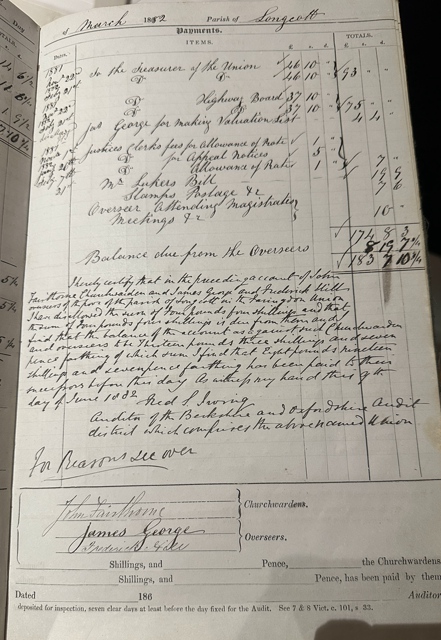 March 1882 Parish of Longcott
Payments.
DATES. ITEMS. £ s. d. TOTALS. £ s. d.
1881 To the Treasurer of the Union 46 10 "
Do Do 46 10 " 93 " "
Do Highway Board 37 10
Do Do 37 10 75 " "
Jas George for making Valuation List 4 4
Justices Clerks fees for Allowance of Rate 1
Do for Appeal Notices 5
Do Allowance of Rate 1 7 "
Mr Lukers Bill
Stamps Postage &c 7 6
Overseer Attending Magistration
Meetings &c 10 "
174 8 3
Balance due from the Overseers 8 19 7¼
183 7 10¼
I hereby certify that in the preceding account of John
Fairthorne Churchwarden and James George and Frederick
overseers of the poor of the parish of Longcott in the Faringdon Union
I have disallowed the sum of Four pounds four shillings and that
the sum of Four pounds four shillings is due from them and I
find that the balance of the account as against said Churchwarden
and overseers to be Thirteen pounds three shillings and seven
pence farthing of which sum I find that Eight pounds nineteen
shillings and sevenpence farthing has been paid to their
successors before this day. As witness my hand this 9th
day of June 1882
Fred S Irving
Auditor of the Berkshire and Oxfordshire Audit
district which comprises the above named Union
For Reasons see over
John Fairthorne
Churchwardens.
James George
Frederick
Overseers.
Shillings, and Pence, the Churchwardens
Shillings, and Pence, has been paid by them
Dated 186 Auditor
deposited for inspection, seven clear days at least before the day fixed for the Audit. See 7 & 8 Vict. c. 101, s 33.